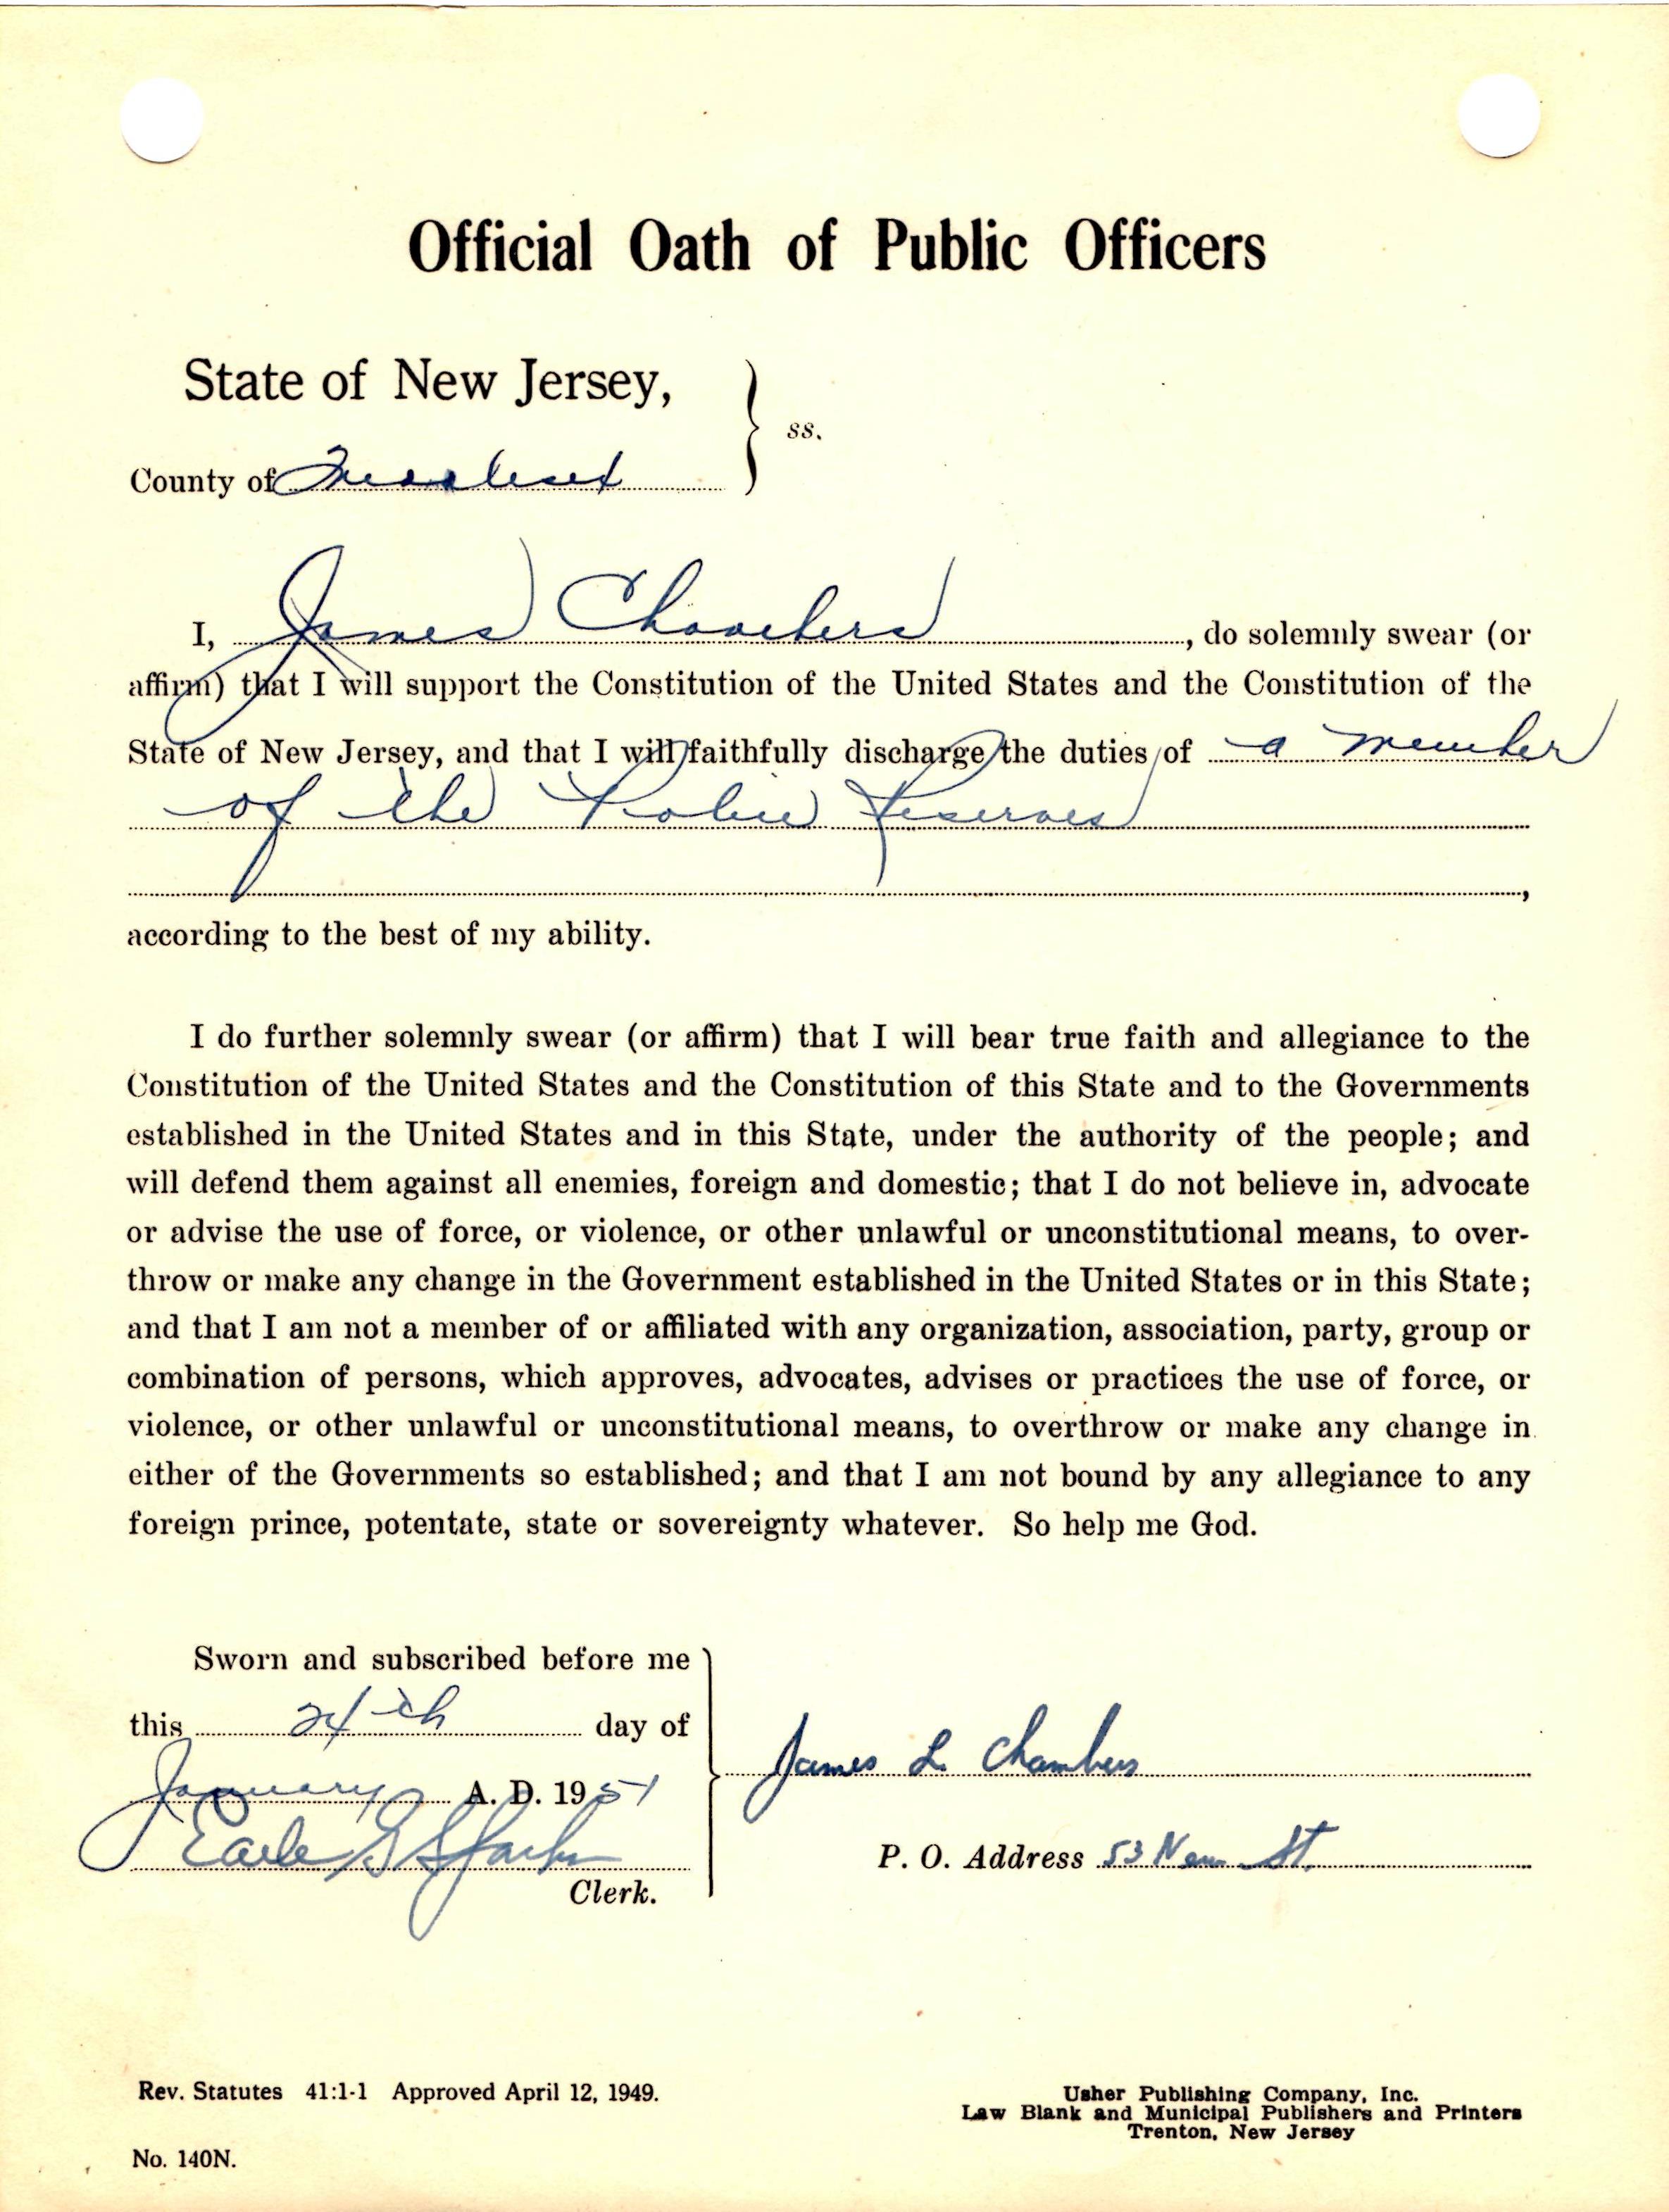 Official Oath of Public Officers
State of New Jersey,
ss.
County of Middlesex
I, James Chambers, do solemnly swear (or
affirm) that I will support the Constitution of the United States and the Constitution of the
State of New Jersey, and that I will faithfully discharge the duties of a member
of the Police Reserves
,
according to the best of my ability.
I do further solemnly swear (or affirm) that I will bear true faith and allegiance to the
Constitution of the United States and the Constitution of this State and to the Governments
established in the United States and in this State, under the authority of the people; and
will defend them against all enemies, foreign and domestic; that I do not believe in, advocate
or advise the use of force, or violence, or other unlawful or unconstitutional means, to over-
throw or make any change in the Government established in the United States or in this State;
and that I am not a member of or affiliated with any organization, association, party, group or
combination of persons, which approves, advocates, advises or practices the use of force, or
violence, or other unlawful or unconstitutional means, to overthrow or make any change in
either of the Governments so established; and that I am not bound by any allegiance to any
foreign prince, potentate, state or sovereignty whatever. So help me God.
Sworn and subscribed before me
this 24th day of
January A. D. 1951
Earle G
Clerk.
James L. Chambers
P. O. Address 53 New St.
Rev. Statutes 41:1-1 Approved April 12, 1949.
No. 140N.
Usher Publishing Company, Inc.
Law Blank and Municipal Publishers and Printers
Trenton, New Jersey